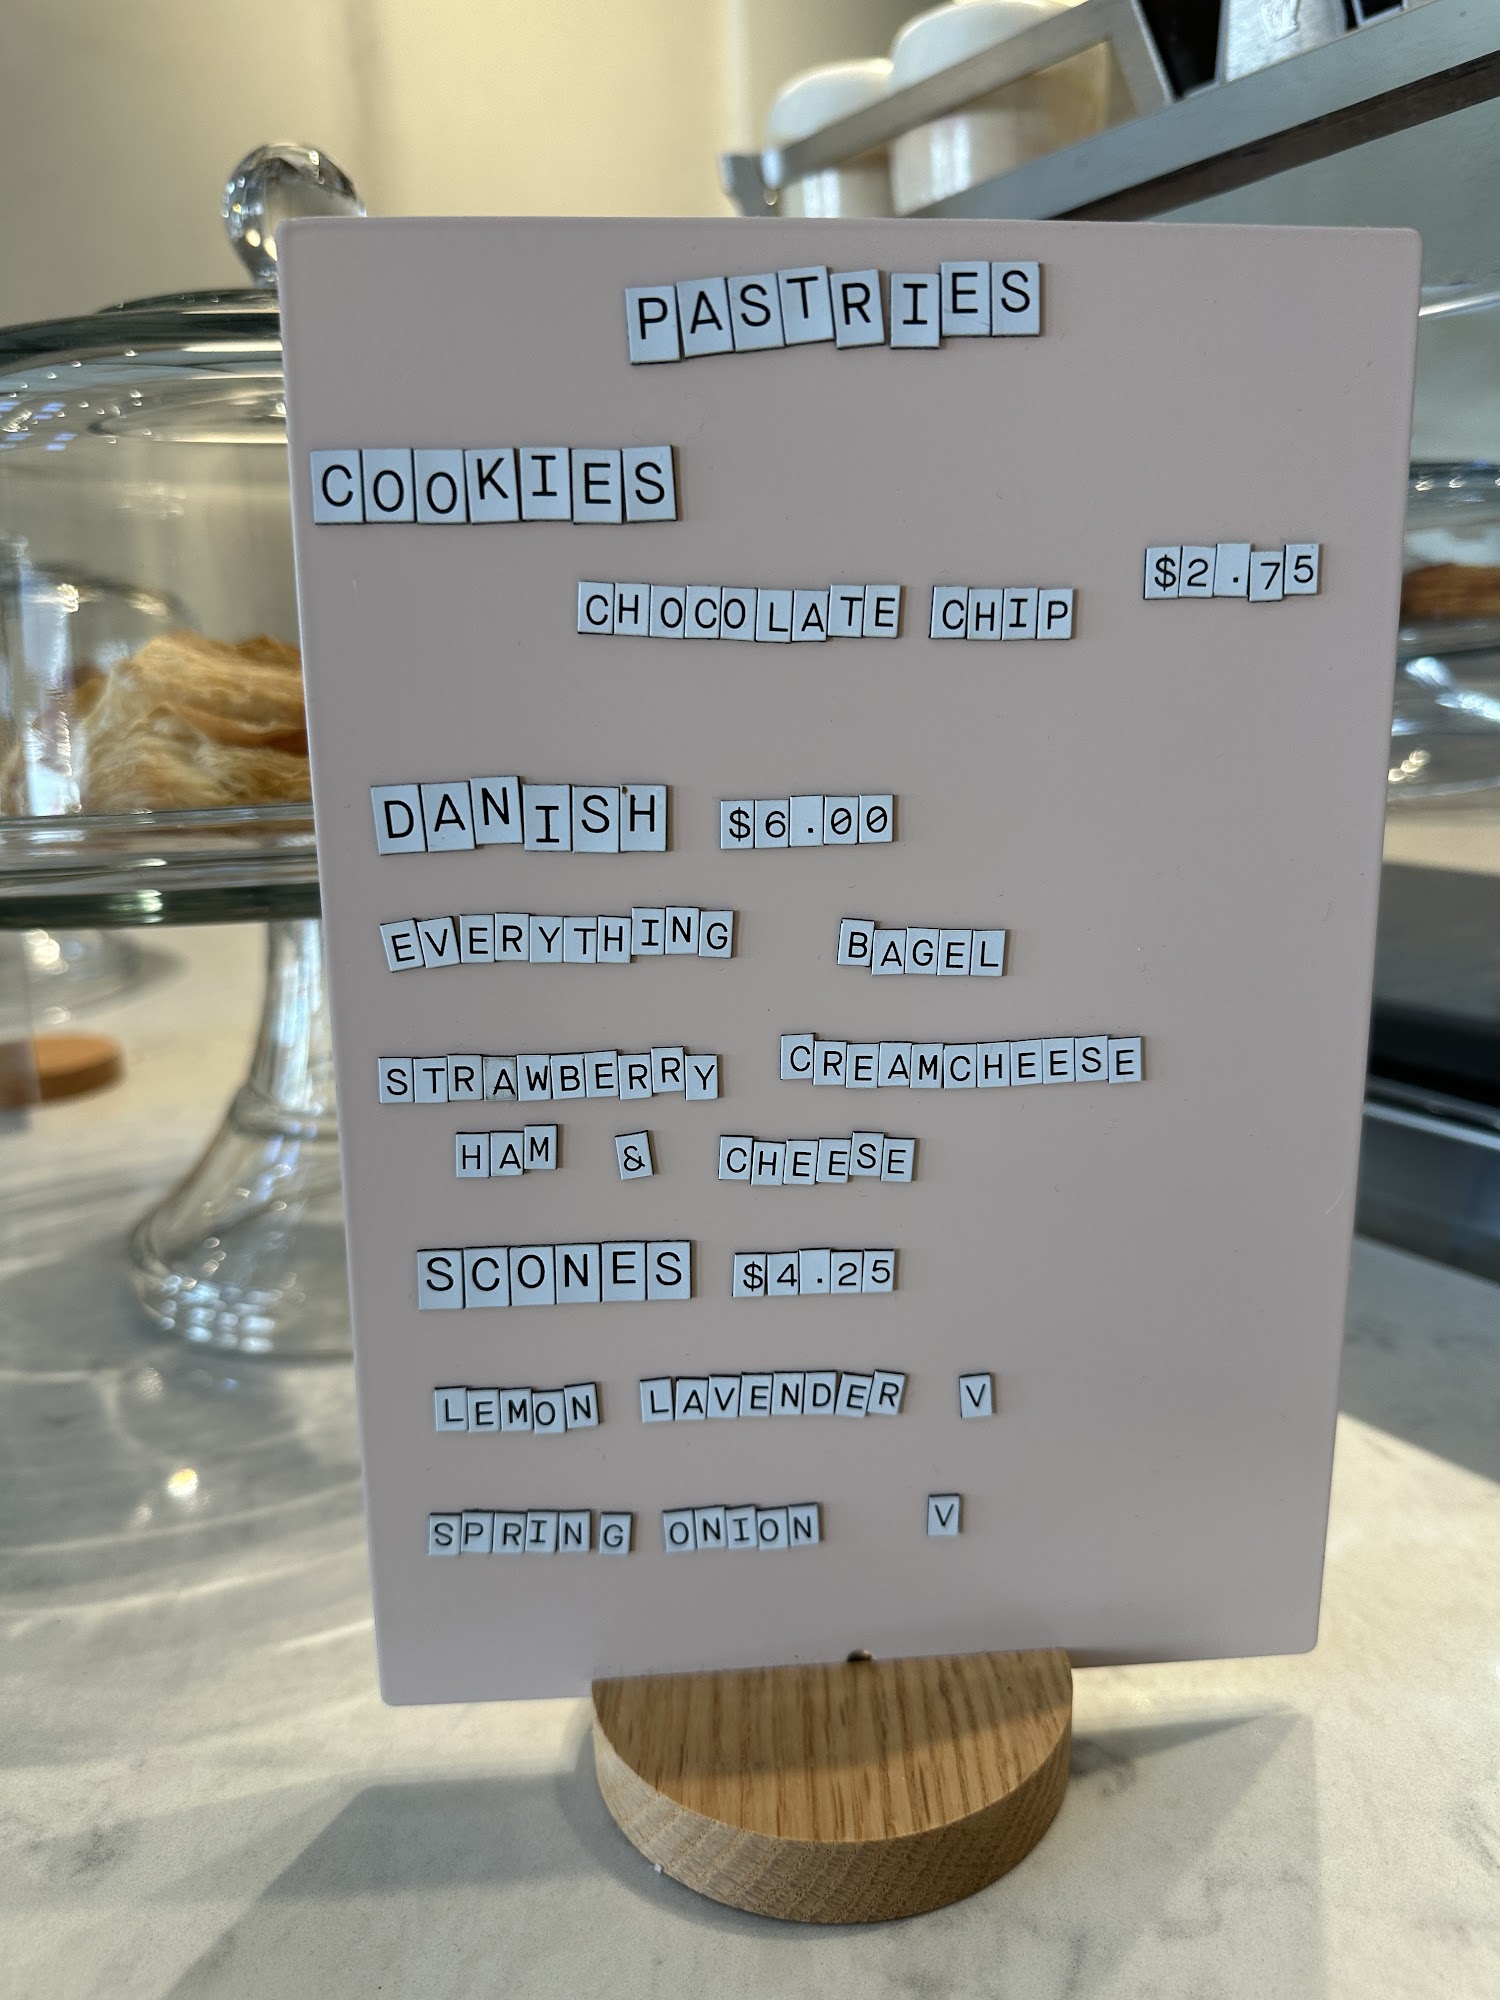 PASTRIES
COOKIES
CHOCOLATE CHIP $2.75
DANISH $6.00
EVERYTHING BAGEL
STRAWBERRY CREAMCHEESE
HAM & CHEESE
SCONES $4.25
LEMON LAVENDER V
SPRING ONION V